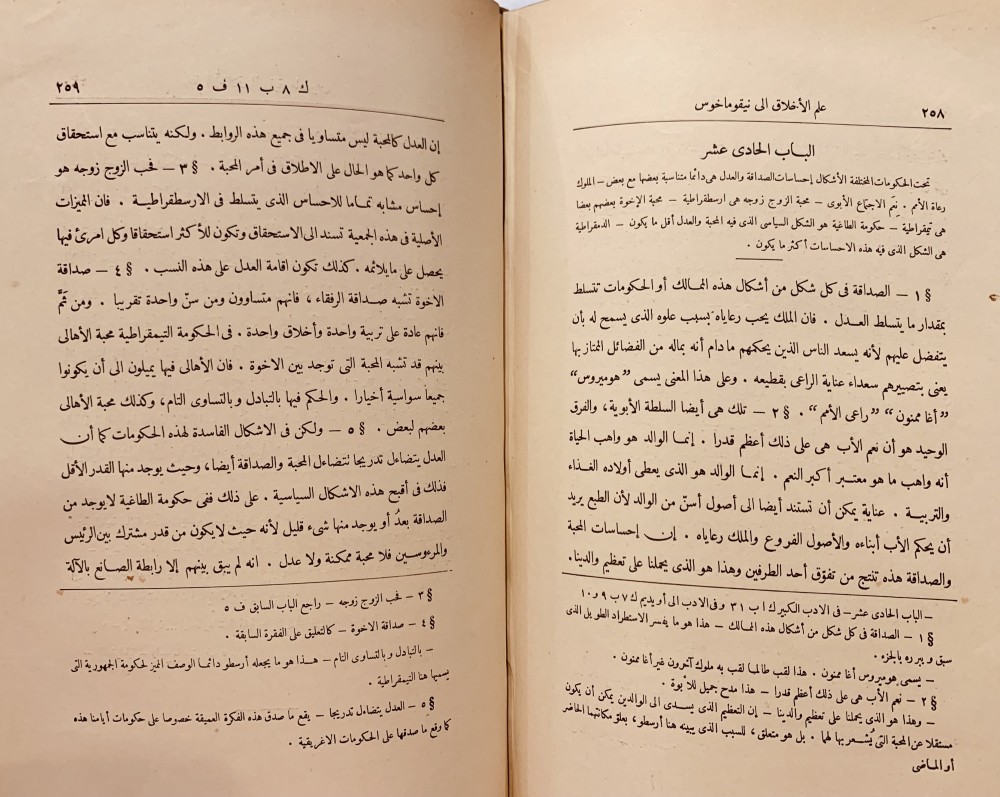 ٢٥٨
علم الأخلاق الى نيقوماخوس
الباب الحادى عشر
تحت الحكومات المختلفة الأشكال إحساسات الصداقة والعدل هى دائما متناسبة بعضها مع بعض — الملوك
رعاة الأمم . نِعَم الاجتماع الأبوى — محبة الزوج زوجه هى ارسطقراطية — محبة الإخوة بعضهم بعضا
هى تيمقراطية — حكومة الطاغية هو الشكل السياسى الذى فيه المحبة والعدل أقل ما يكون — الدمقراطية
هى الشكل الذى فيه هذه الاحساسات أكثر ما يكون .
§ ١ — الصداقة فى كل شكل من أشكال هذه الممالك أو الحكومات تتسلط
بمقدار ما يتسلط العدل . فان الملك يحب رعاياه بسبب علوه الذى يسمح له بأن
يتفضل عليهم لأنه يسعد الناس الذين يحكمهم ما دام أنه بماله من الفضائل الممتاز بها
يعنى بتصييرهم سعداء عناية الراعى بقطيعه . وعلى هذا المعنى يسمى ”هوميروس“
”أغا ممنون“ ”راعى الأمم“ . § ٢ — تلك هى أيضا السلطة الأبوية، والفرق
الوحيد هو أن نعم الأب هى على ذلك أعظم قدرا . إنما الوالد هو واهب الحياة
أنه واهب ما هو معتبر أكبر النعم . إنما الوالد هو الذى يعطى أولاده الغذاء
والتربية . عناية يمكن أن تستند أيضا الى أصول أسنّ من الوالد لأن الطبع يريد
أن يحكم الأب أبناءه والأصول الفروع والملك رعاياه . إن إحساسات المحبة
والصداقة هذه تنتج من تفوّق أحد الطرفين وهذا هو الذى يحملنا على تعظيم والدينا.
— الباب الحادى عشر — فى الادب الكبير ك ١ ب ٣١ وفى الادب الى أويديم ك ٧ ب ٩ و ١٠
§ ١ — الصداقة فى كل شكل من أشكال هذه الممالك — هذا هو ما يفسر الاستطراد الطويل الذى
سبق ويبرره بالجزء .
— يسمى هوميروس أغا ممنون . هذا لقب طالما لقب به ملوك آخرون غير أغا ممنون .
§ ٢ — نعم الأب هى على ذلك أعظم قدرا — هذا مدح جميل للأبوة .
— وهذا هو الذى يحملنا على تعظيم والدينا — إن التعظيم الذى يسدى الى الوالدين يمكن أن يكون
مستقلا عن المحبة التى يُشعر بها لهما . بل هو متعلق، للسبب الذى يبينه هنا أرسطو، بعلو مكانتهما الحاضر
أو الماضى
ك ٨ ب ١١ ف ٥
٢٥٩
إن العدل كالمحبة ليس متساويا فى جميع هذه الروابط . ولكنه يتناسب مع استحقاق
كل واحد كما هو الحال على الاطلاق فى أمر المحبة . § ٣ — فحب الزوج زوجه هو
إحساس مشابه تماما للاحساس الذى يتسلط فى الارسطقراطية . فان الميزات
الأصلية فى هذه الجمعية تسند الى الاستحقاق وتكون للأكثر استحقاقا وكل امرئ فيها
يحصل على ما يلائمه . كذلك تكون اقامة العدل على هذه النسب . § ٤ — صداقة
الاخوة تشبه صداقة الرفقاء، فانهم متساوون ومن سنّ واحدة تقريبا . ومن ثَمَّ
فانهم عادة على تربية واحدة وأخلاق واحدة . فى الحكومة التيمقراطية محبة الأهالى
بينهم قد تشبه المحبة التى توجد بين الاخوة . فان الأهالى فيها يميلون الى أن يكونوا
جميعا سواسية أخيارا . والحكم فيها بالتبادل وبالتساوى التام، وكذلك محبة الأهالى
بعضهم لبعض . § ٥ — ولكن فى الاشكال الفاسدة لهذه الحكومات كما أن
العدل يتضاءل تدريجا تتضاءل المحبة والصداقة أيضا، وحيث يوجد منها القدر الأقل
فذلك فى أقبح هذه الاشكال السياسية . على ذلك ففى حكومة الطاغية لا يوجد من
الصداقة بعدُ أو يوجد منها شىء قليل لأنه حيث لا يكون من قدر مشترك بين الرئيس
والمرءوسين فلا محبة ممكنة ولا عدل . انه لم يبق بينهم إلا رابطة الصانع بالآلة
§ ٣ — فحب الزوج زوجه — راجع الباب السابق ف ٥
§ ٤ — صداقة الاخوة — كالتعليق على الفقرة السابقة .
— بالتبادل وبالتساوى التام — هذا هو ما يجعله أرسطو دائما الوصف المميز لحكومة الجمهورية التى
يسميها هنا التيمقراطية .
§ ٥ — العدل يتضاءل تدريجا — يقع ما صدق هذه الفكرة العميقة خصوصا على حكومات أيامنا هذه
كما وقع ما صدقها على الحكومات الاغريقية .